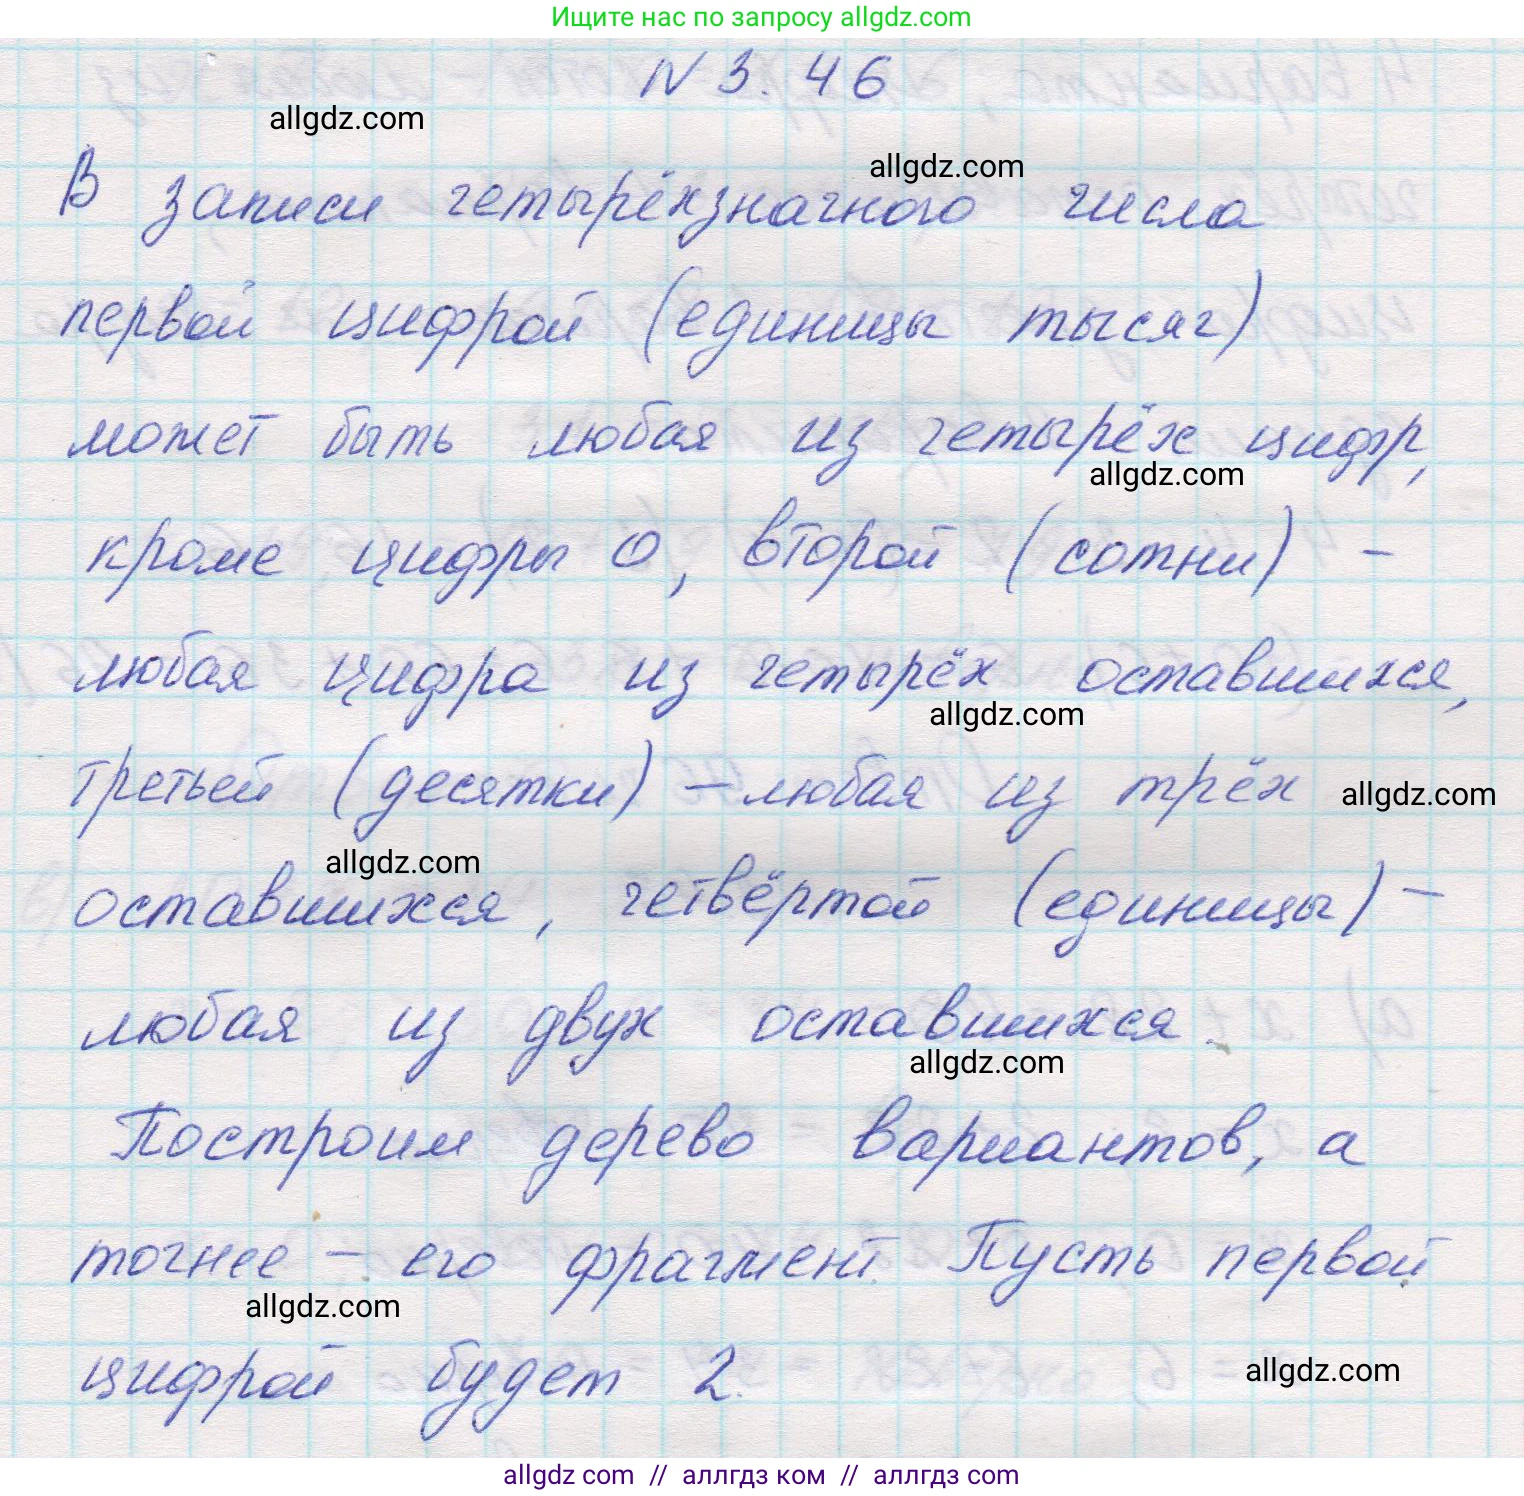 Ищите нас по запросу allgdz.com
N 3.46
allgdz.com
allgdz.com
В записи четырёхзначного числа
первой цифрой (единицы тысяч)
может быть любая из четырёх цифр,
allgdz.com
кроме цифры 0, второй (сотни) –
любая цифра из четырёх оставшихся,
allgdz.com
третьей (десятки) – любая из трёх
allgdz.com
allgdz.com
оставшихся, четвёртой (единицы) –
любая из двух оставшихся.
allgdz.com
Построим дерево вариантов, а
точнее – его фрагмент. Пусть первой
allgdz.com
цифрой будет 2.
allgdz.com
allgdz com // аллгдз ком // аллгдз com